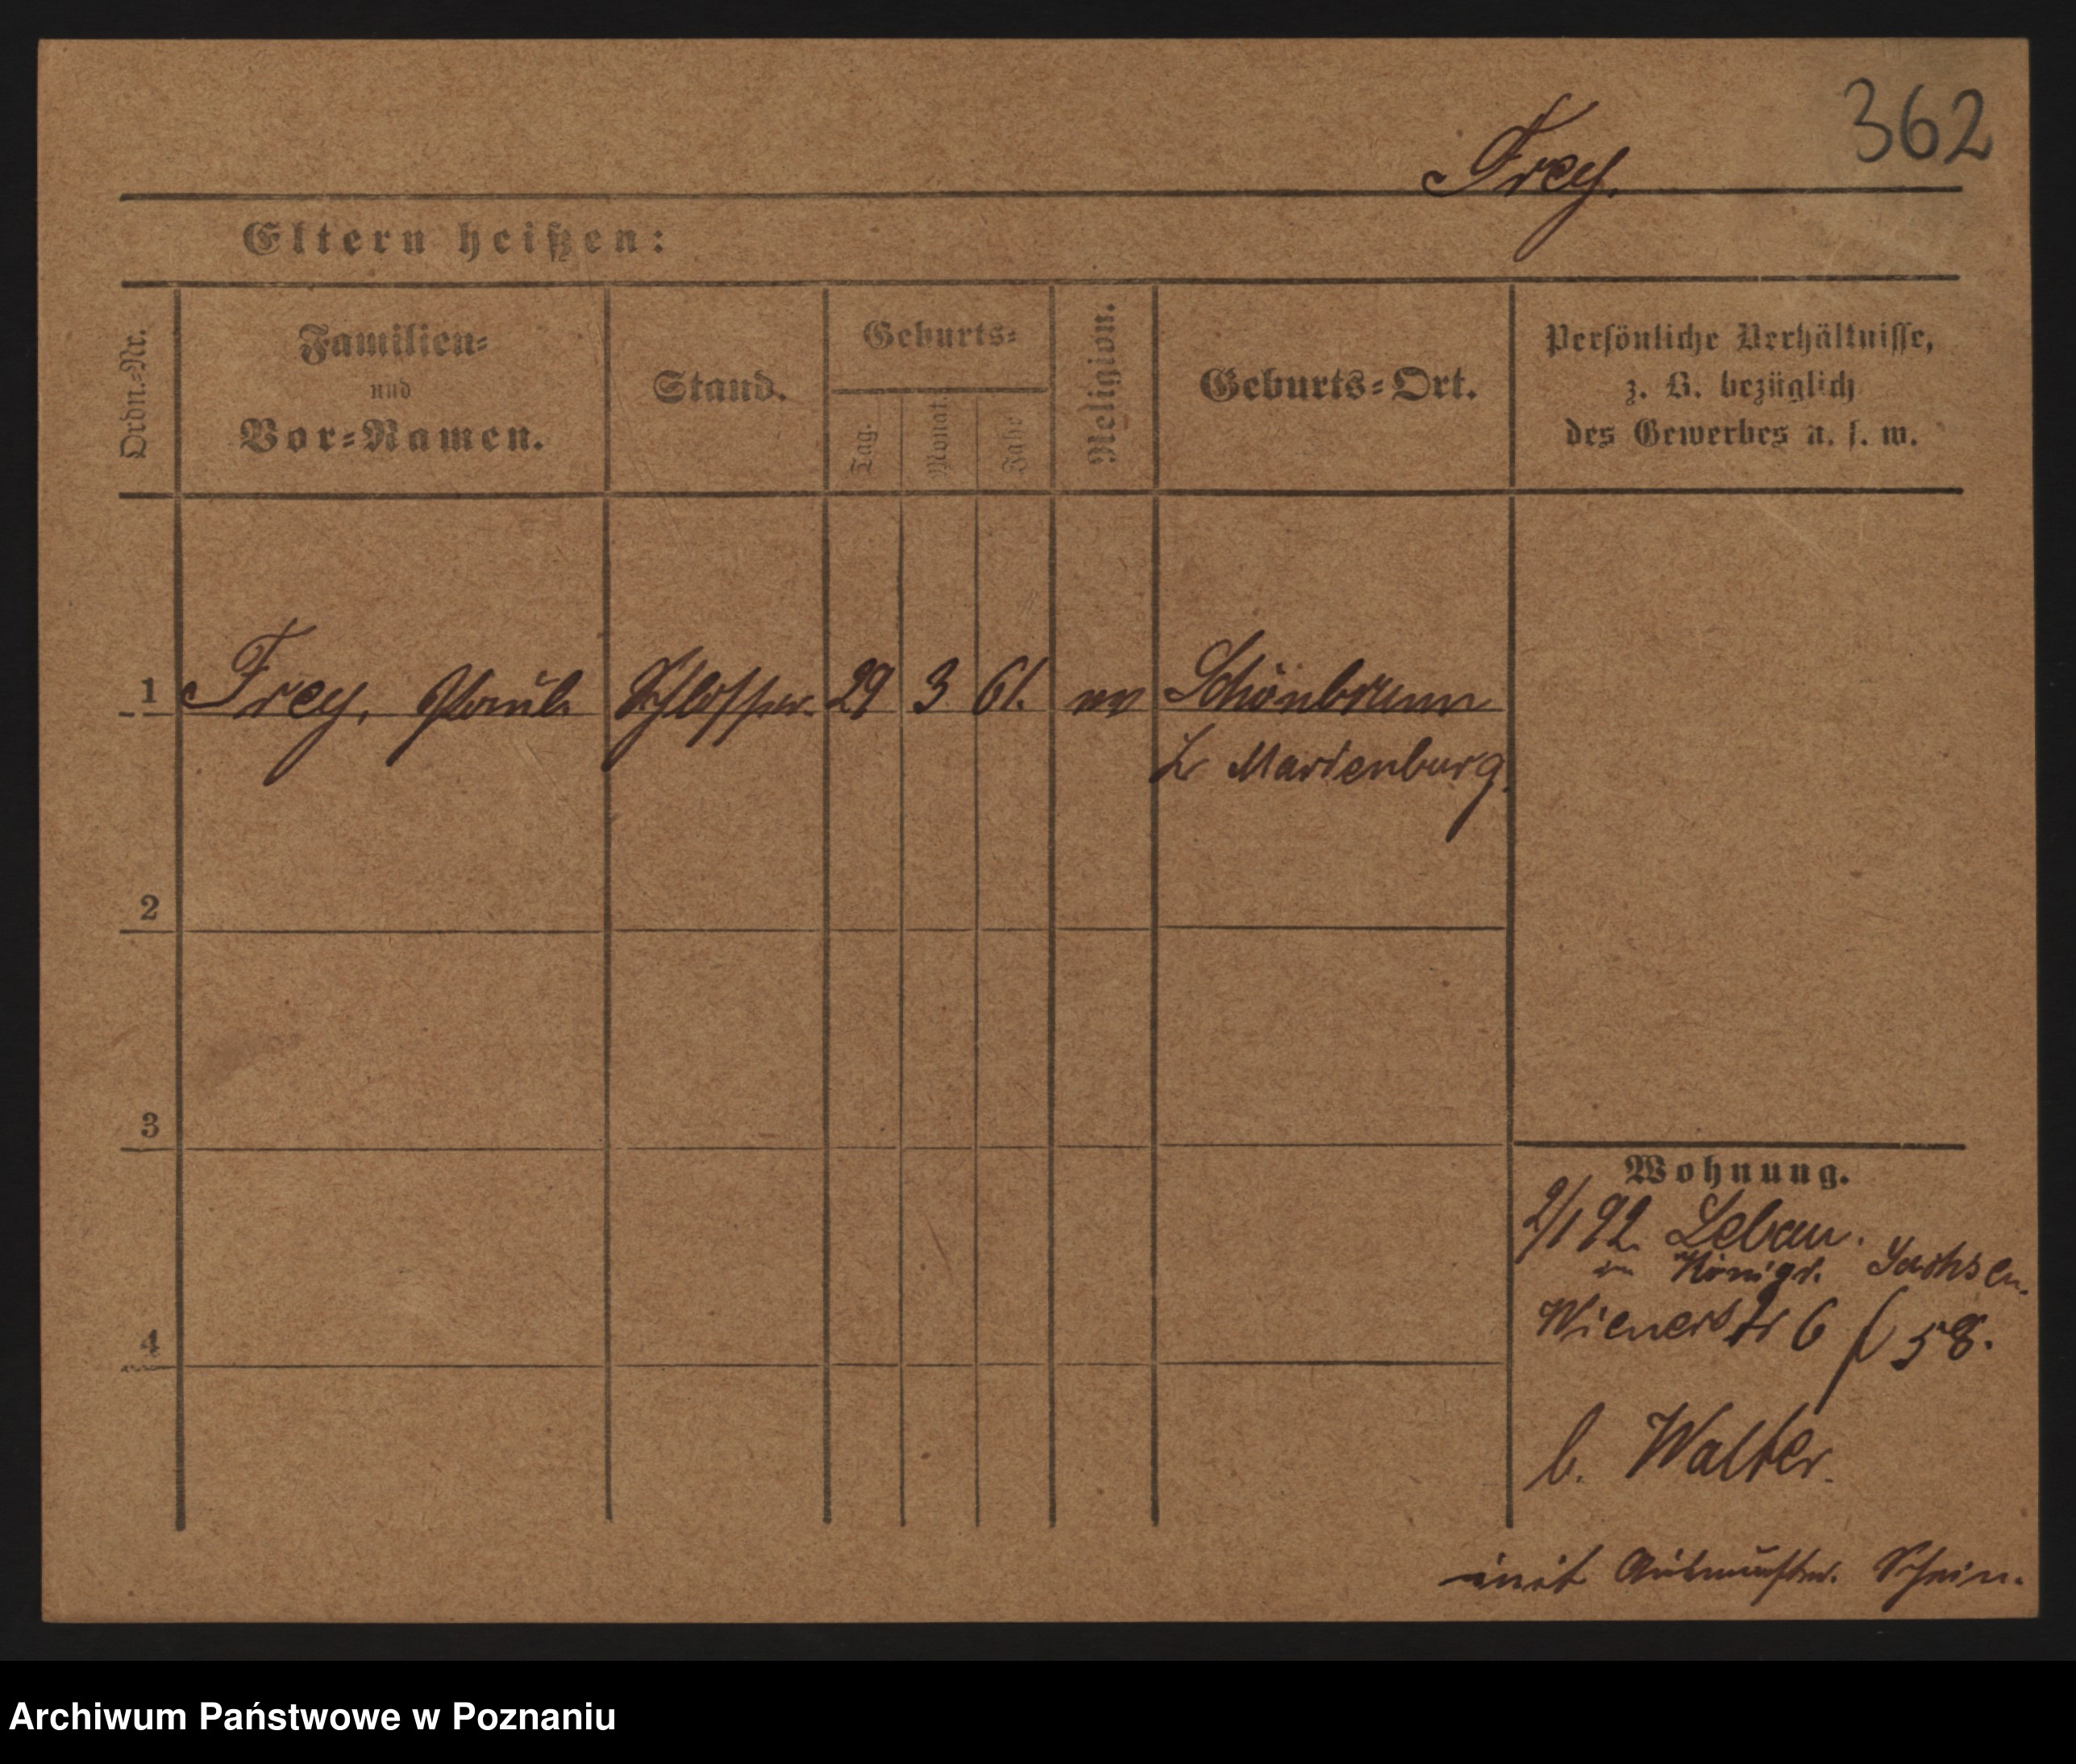 362
Frey.
Eltern heißen:
Ordn.-Nr.
Familien-
und
Vor-Namen.
Stand.
Geburts-
Tag.
Monat.
Jahr
Religion.
Geburts-Ort.
Persönliche Verhältnisse,
z. B. bezüglich
des Gewerbes u. s. w.
1 Frey, Paul. Schlosser. 29 3 61. ev Schönbrunn
Marienburg.
2
3
4
Wohnung.
2/1 92. Lebau.
in Königr. Sachsen.
Wienerstr 6 58.
b. Walter.
mit Ausmuster. Schein.
Archiwum Państwowe w Poznaniu